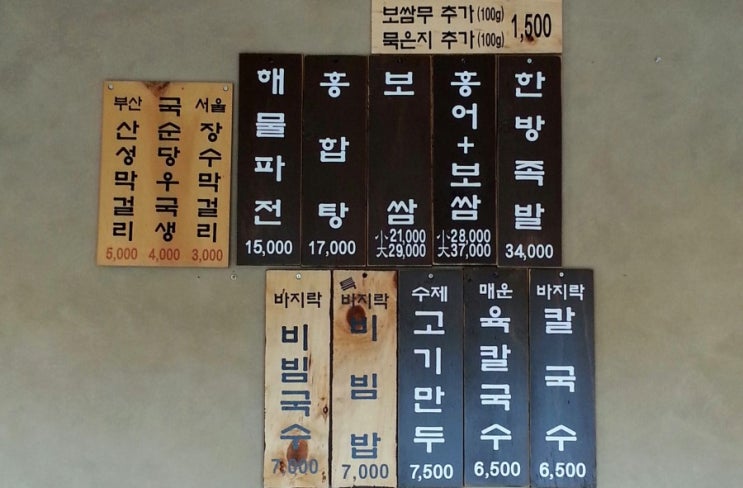 보쌈무 추가 (100g)
묵은지 추가 (100g)
1,500
부산 산성막걸리 5,000
국순당우국생 4,000
서울 장수막걸리 3,000
해물파전 15,000
홍합탕 17,000
보쌈 小21,000
大29,000
홍어+보쌈 小28,000
大37,000
한방족발 34,000
바지락 비빔국수 7,000
특 바지락 비빔밥 7,000
수제 고기만두 7,500
매운 육칼국수 6,500
바지락 칼국수 6,500